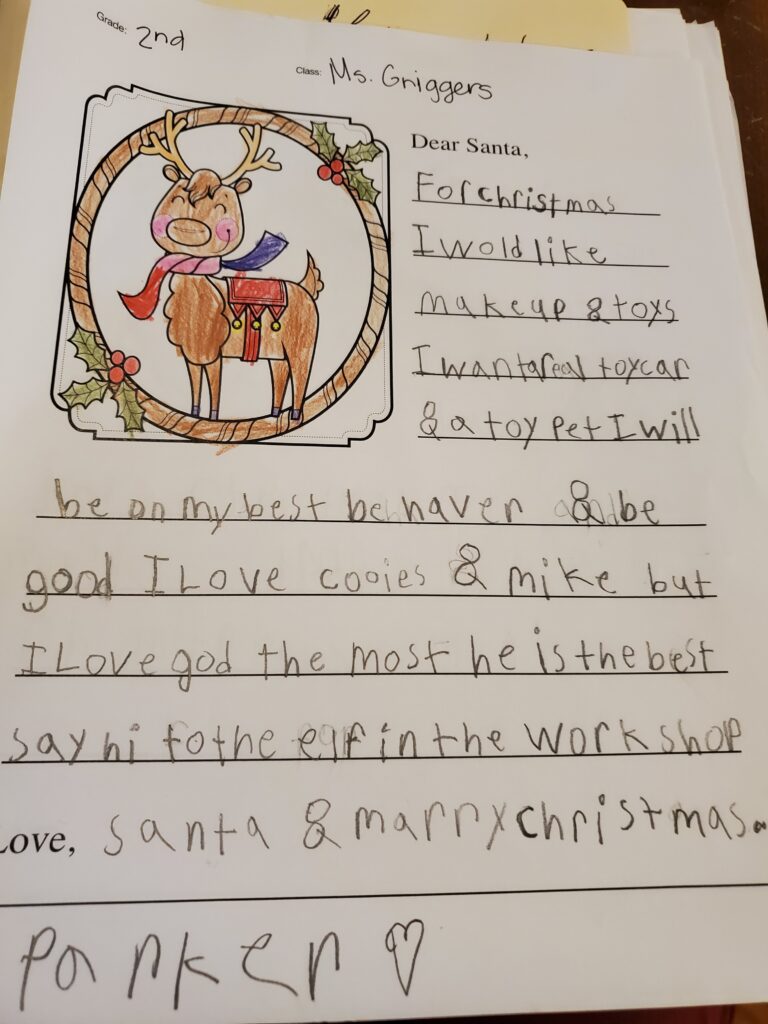 Grade: 2nd
Class: Ms. Griggers
Dear Santa,
For christmas
I wold like
makeup & toys
I want a real toy car
& a toy pet I will
be on my best behaver & be
good I Love cooies & mike but
I Love god the most he is the best
say hi to the elf in the work shop
Love, santa & marry christmas.
Parker